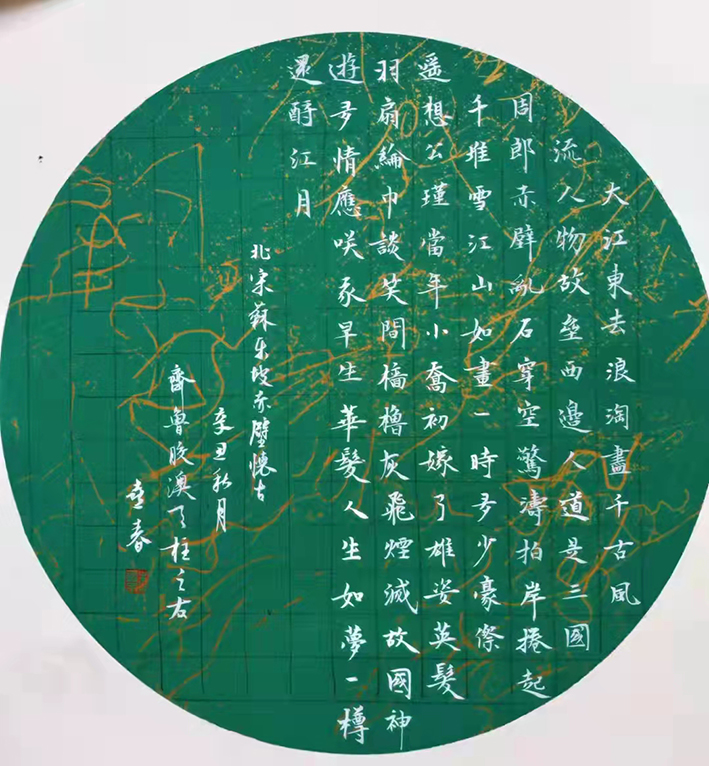 大江東去浪淘盡千古風
流人物故壘西邊人道是三國
周郎赤壁亂石穿空驚濤拍岸捲起
千堆雪江山如畫一時多少豪傑
遥想公瑾當年小喬初嫁了雄姿英髮
羽扇綸巾談笑間檣櫓灰飛煙滅故國神
遊多情應咲我早生華髮人生如夢一樽
還酹江月
北宋蘇東坡赤壁懷古
辛丑秋月
齊魯膠澳天柱之右
春